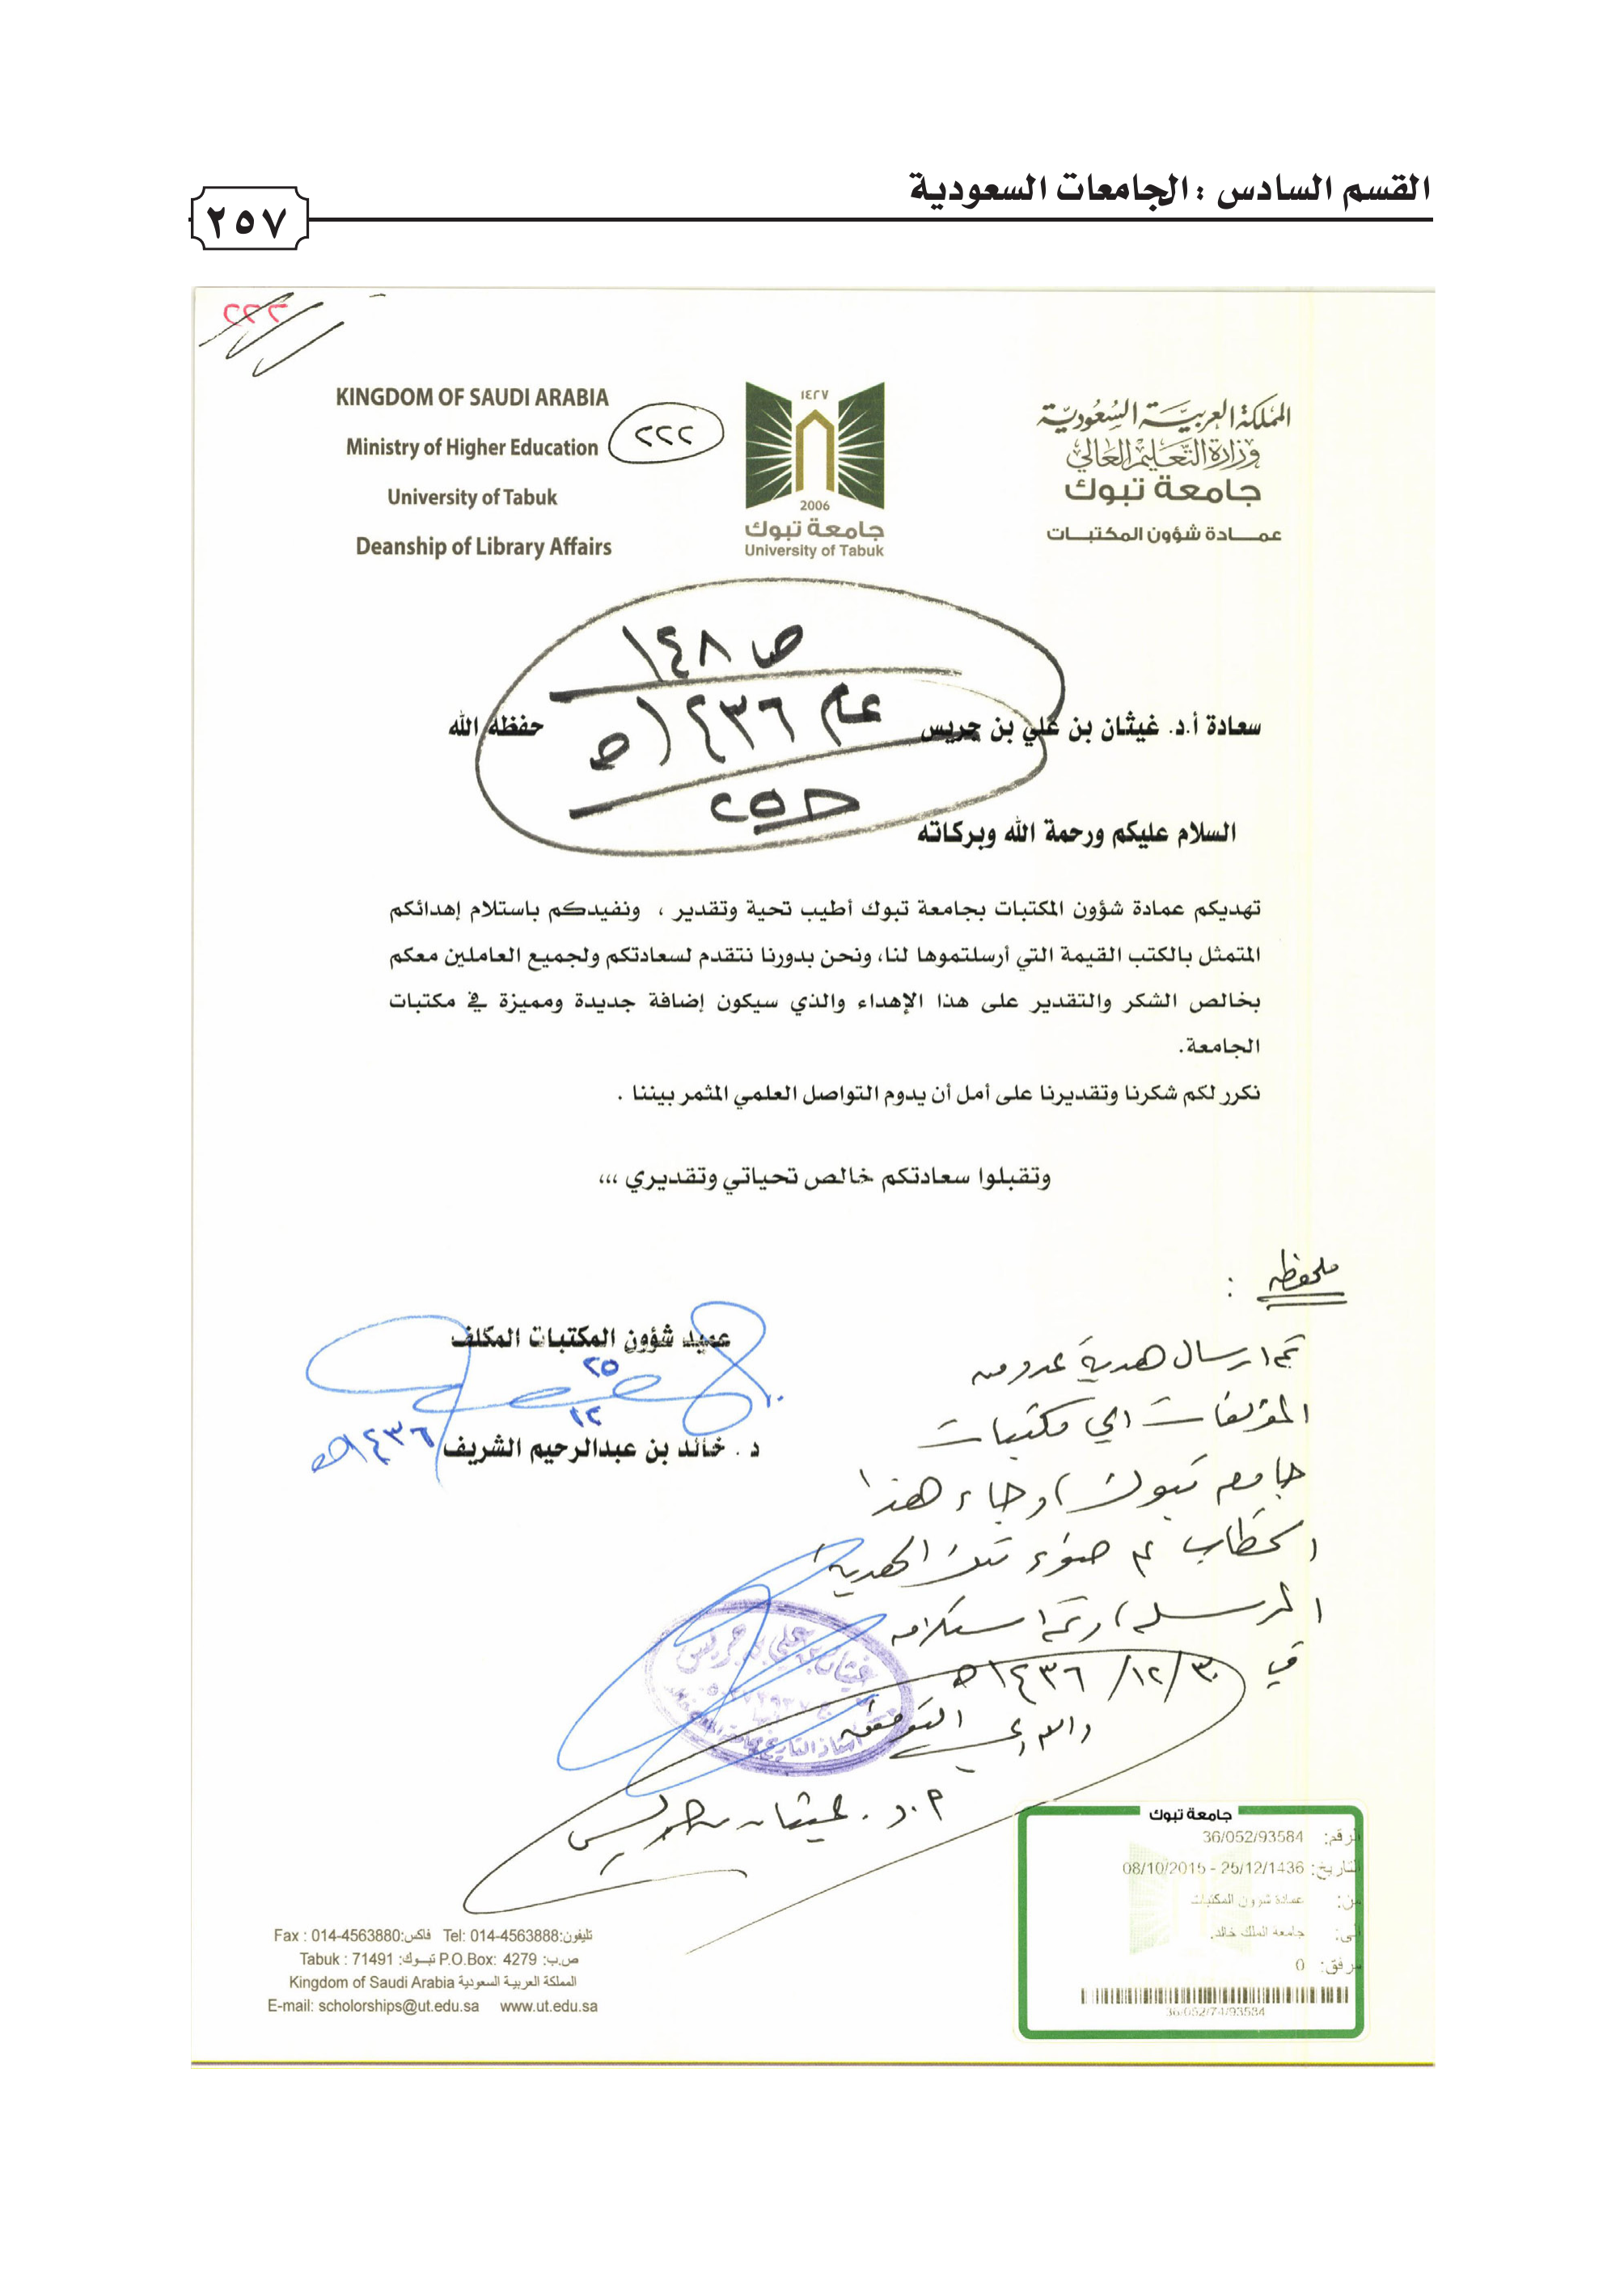 القسم السادس : الجامعات السعودية
٢٥٧
٢٢٢
KINGDOM OF SAUDI ARABIA
Ministry of Higher Education
University of Tabuk
Deanship of Library Affairs
٢٢٢
١٤٢٧
2006
جامعة تبوك
University of Tabuk
المملكة العربية السعودية
وزارة التعليم العالي
جامعة تبوك
عمـــادة شؤون المكتبـــات
ص ١٤٨
عام ١٤٣٦هـ
سعادة أ.د. غيثان بن علي بن جريس حفظه الله
السلام عليكم ورحمة الله وبركاته
تهديكم عمادة شؤون المكتبات بجامعة تبوك أطيب تحية وتقدير ، ونفيدكم باستلام إهدائكم
المتمثل بالكتب القيمة التي أرسلتموها لنا، ونحن بدورنا نتقدم لسعادتكم ولجميع العاملين معكم
بخالص الشكر والتقدير على هذا الإهداء والذي سيكون إضافة جديدة ومميزة في مكتبات
الجامعة.
نكرر لكم شكرنا وتقديرنا على أمل أن يدوم التواصل العلمي المثمر بيننا .
وتقبلوا سعادتكم خالص تحياتي وتقديري ،،،
عميد شؤون المكتبات المكلف
٢٥
١٢
١٤٣٦هـ
د . خالد بن عبدالرحيم الشريف
ملحوظه :
تم ارسال هدية عدد من
المؤلفات الى مكتبات
جامعه تبوك، وجاء هذا
الخطاب على ضوء تلك الهدية
المرسله، وتم استلامه
في ٣٠/١٢/١٤٣٦هـ
والله ولي التوفيق
أ.د. غيثان بن جريس
غيثان بن علي بن جريس
جامعة تبوك
الرقم: 36/052/93584
التاريخ: 25/12/1436 - 08/10/2015
من: عمادة شؤون المكتبات
الى: جامعة الملك خالد.
مرفق: 0
Fax : 014-4563880 :فاكس Tel: 014-4563888 :تليفون
Tabuk : 71491 :تبــوك P.O.Box: 4279 :ص.ب
Kingdom of Saudi Arabia المملكة العربية السعودية
E-mail: scholorships@ut.edu.sa www.ut.edu.sa